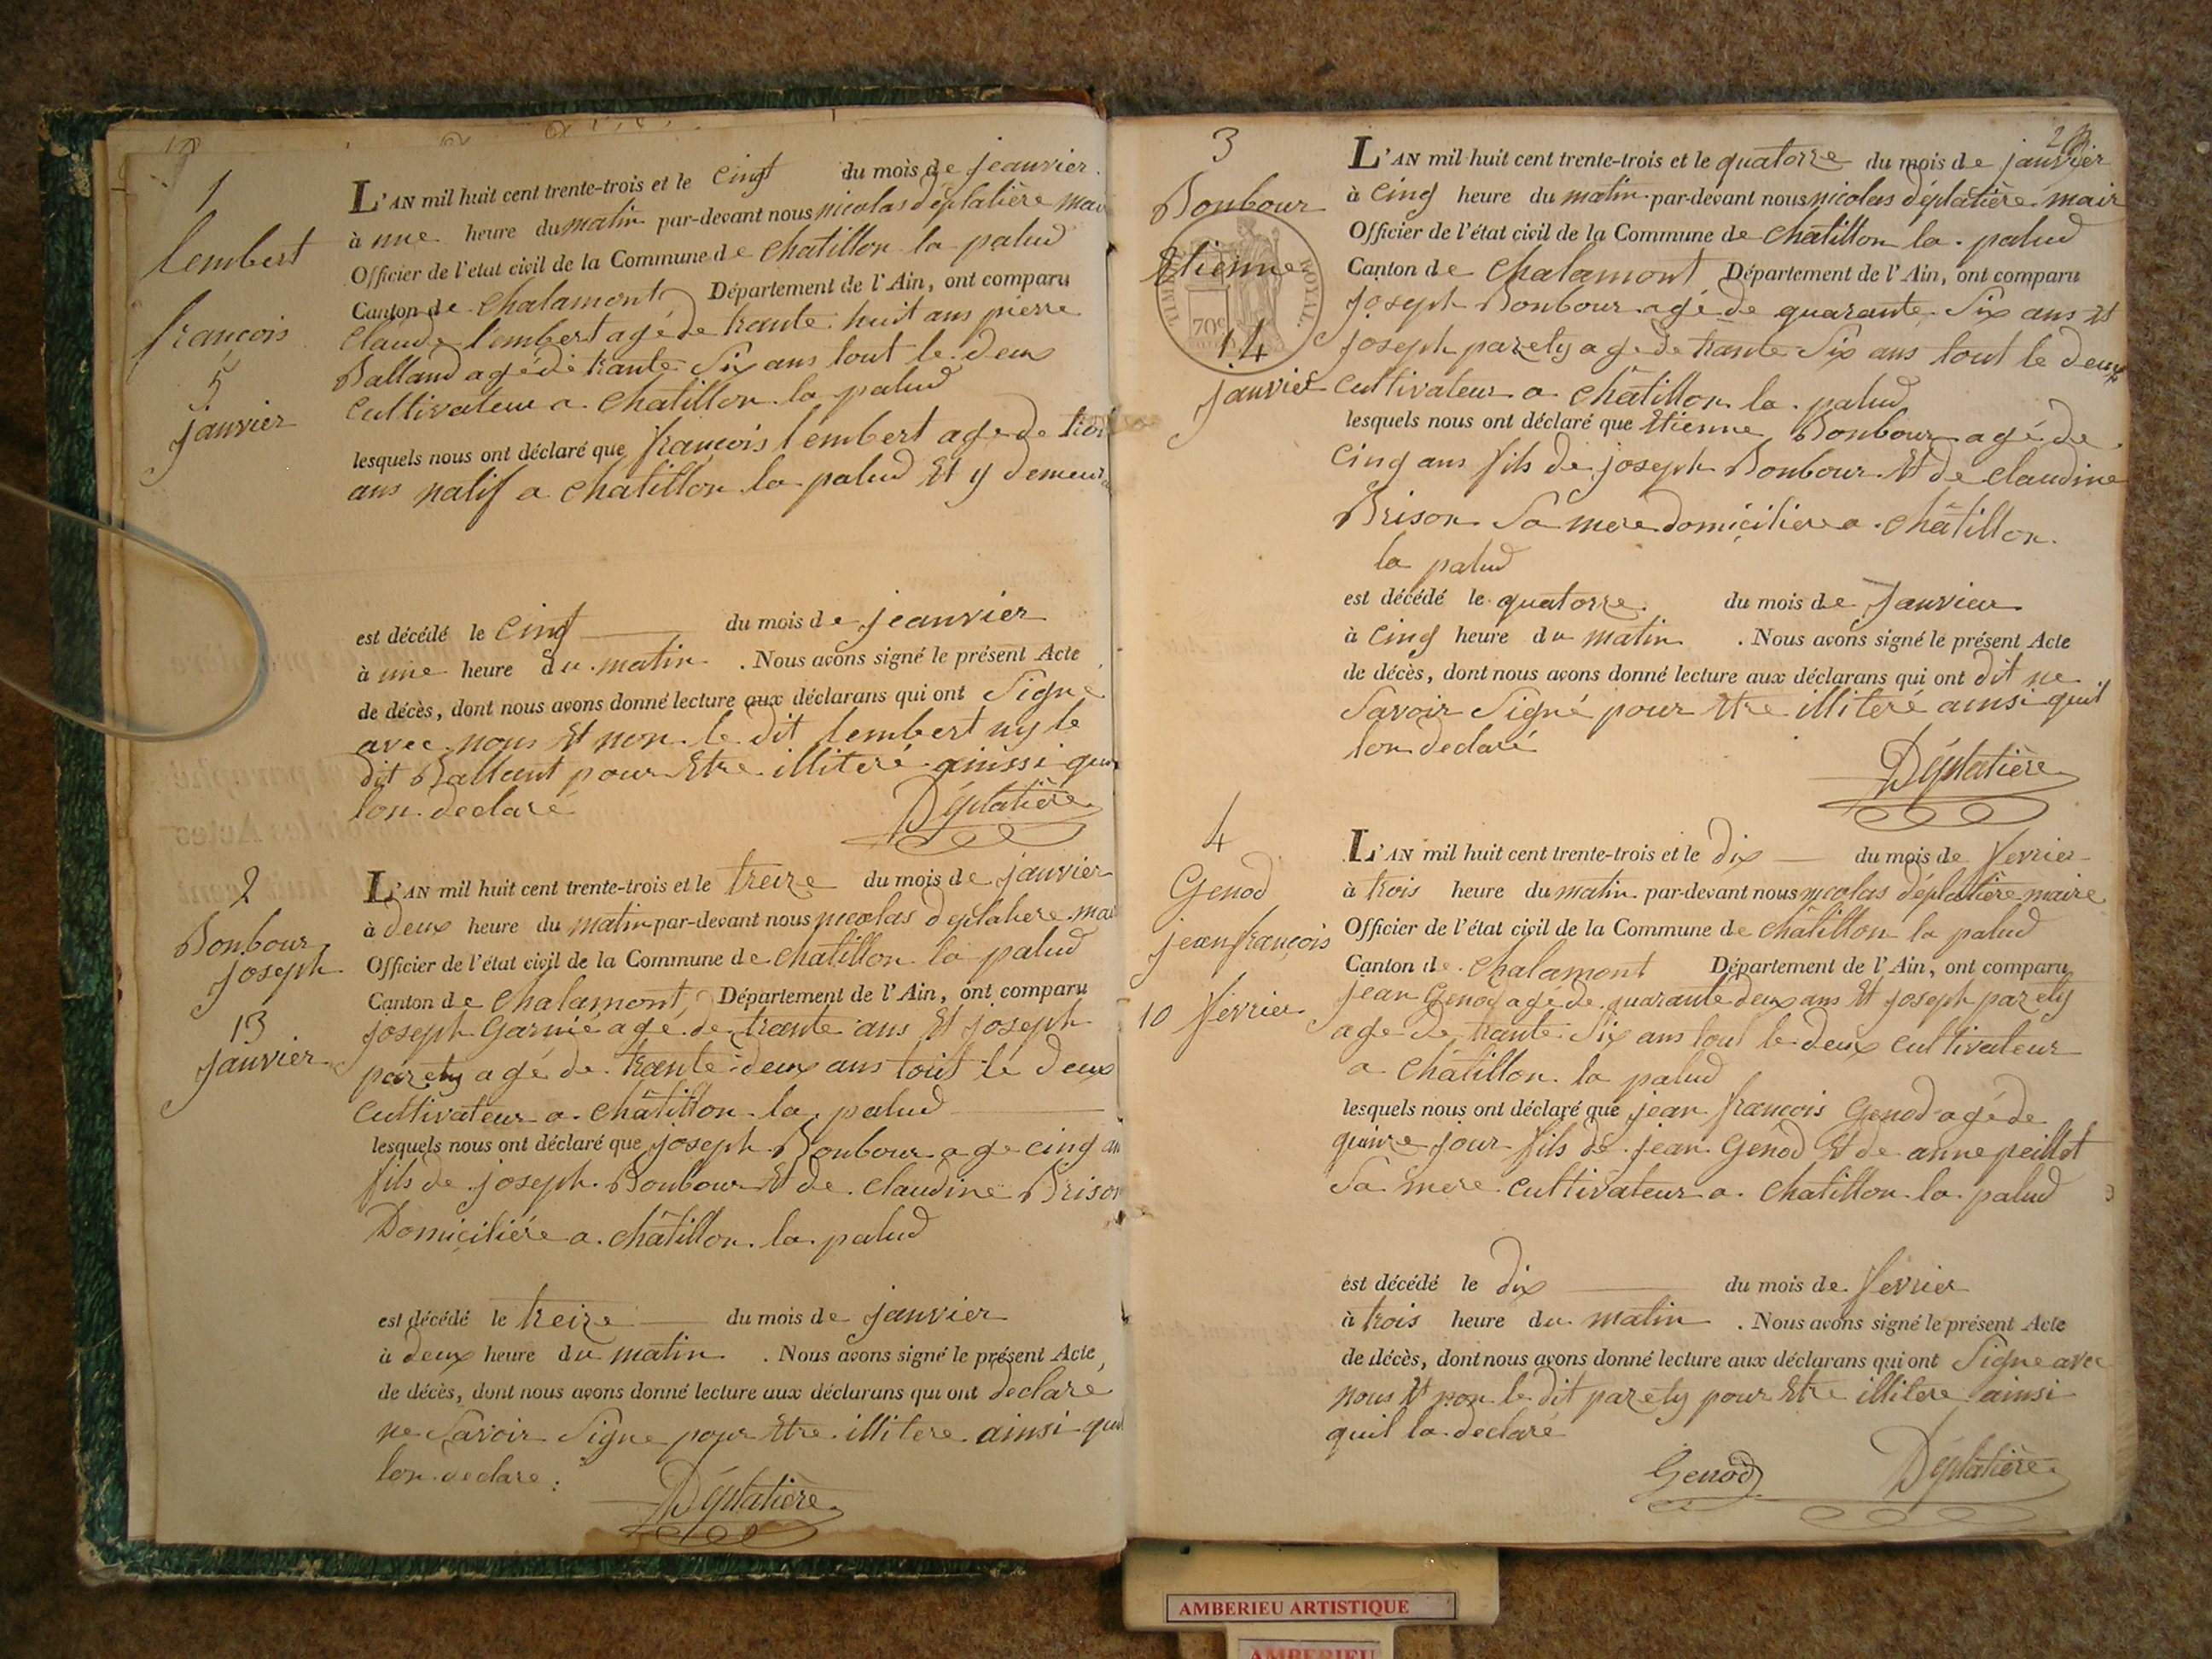 1
lembert
françois
5
janvier
L'AN mil huit cent trente-trois et le cinq du mois de jeanvier
à une heure du matin par-devant nous nicolas déplatière
Officier de l'etat civil de la Commune de chatillon la palud
Canton de chalamont Département de l'Ain, ont comparu
claude lembert agé de trante huit ans pierre
Balland agé de trante Six ans tout le deux
cultivateur a chatillon la palud
lesquels nous ont déclaré que françois lembert age de
ans natif a chatillon la palud Et y
est décédé le cinq du mois de jeanvier
à une heure du matin . Nous avons signé le présent Acte
de décès, dont nous avons donné lecture aux déclarans qui ont Signe
avec nous Et non le dit lembert ny le
dit Ballant pour Etre illiteré
lon declaré
Déplatière
2
Bonbour
joseph
13
janvier
L'AN mil huit cent trente-trois et le treize du mois de janvier
à deux heure du matin par-devant nous nicolas déplatiere
Officier de l'état civil de la Commune de chatillon la palud
Canton de chalamont Département de l'Ain, ont comparu
joseph Garnié agé de trante ans Et joseph
parety agé de trante deux ans tout le deux
cultivateur a châtillon la palud
lesquels nous ont déclaré que joseph Bonbour age cinq
fils de joseph Bonbour Et de claudine Brison
Domiciliére a châtillon la palud
est décédé le treize du mois de janvier
à deux heure du matin . Nous avons signé le présent Acte,
de décès, dont nous avons donné lecture aux déclarans qui ont declare
ne Savoir Signe pour Etre illitere ainsi
lon declare :
Déplatière
3
Bonbour
Etienne
TIMBRE ROYAL.
70c
14
janvier
2
L'AN mil huit cent trente-trois et le quatorze du mois de janvier
à cinq heure du matin par-devant nous nicolas déplatière mair
Officier de l'état civil de la Commune de châtillon la palud
Canton de chalamont Département de l'Ain, ont comparu
joseph Bonbour agé de quarante Six ans Et
joseph parety age de trante Six ans tout le deux
cultivateur a châtillon la palud
lesquels nous ont déclaré que Etienne Bonbour agé de
cinq ans fils de joseph Bonbour Et de claudine
Brison Sa mere domiciliere a châtillon
la palud
est décédé le quatorze du mois de Janvier
à cinq heure du matin . Nous avons signé le présent Acte
de décès, dont nous avons donné lecture aux déclarans qui ont dit ne
Savoir Signé pour Etre illiteré ainsi quil
lon declaré
Déplatière
4
Genod
jean françois
10 fevrier
L'AN mil huit cent trente-trois et le dix du mois de fevrier
à trois heure du matin par-devant nous nicolas déplatière maire
Officier de l'état civil de la Commune de châtillon la palud
Canton de chalamont Département de l'Ain, ont comparu
jean Genod agé de quarante deux ans Et joseph parety
age de trante Six ans tout le deux cultivateur
a châtillon la palud
lesquels nous ont déclaré que jean françois Genod agé de
quinze jour fils de jean Genod Et de anne peillot
Sa mere cultivateur a chatillon la palud
est décédé le dix du mois de fevrier
à trois heure du matin . Nous avons signé le présent Acte
de décès, dont nous avons donné lecture aux déclarans qui ont Signe avec
nous Et non le dit parety pour Etre illitere ainsi
quil la declaré
Genod Déplatière
AMBERIEU ARTISTIQUE
AMBERIEU